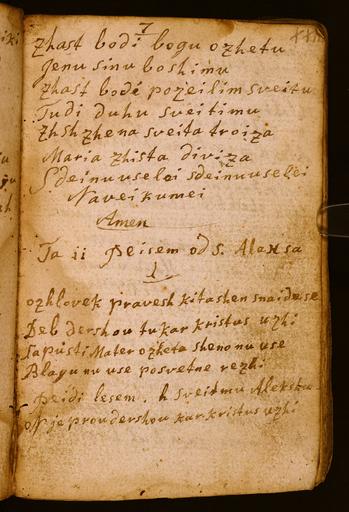 7
zhast bodi bogu ozhetu
Jenu sinu boshimu
zhast bodi pozeilim sveitu
Tudi duhu sveitimu
zhsh zhena sveita troiza
Maria zhista diviza
Sdeinu uselei sdeinu uselei
Naveikumei
Amen
Ta ii Peisem od S. Alexsa
1
ozhlovek pravesh kitashen snaiduse
Deb dershou tukar kristus uzhi
Sapusti Mater ozheta sheno nu use
Blagu nu use posvetne rezhi
Peidi lesem . k sveidmu
oN je prou dershou kar kristus uzhi